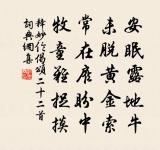 安眠露地牛
未脫黃金索
常在顧盼中
牧童難捉摸
釋妙倫偈頌二十二首
詞典網集